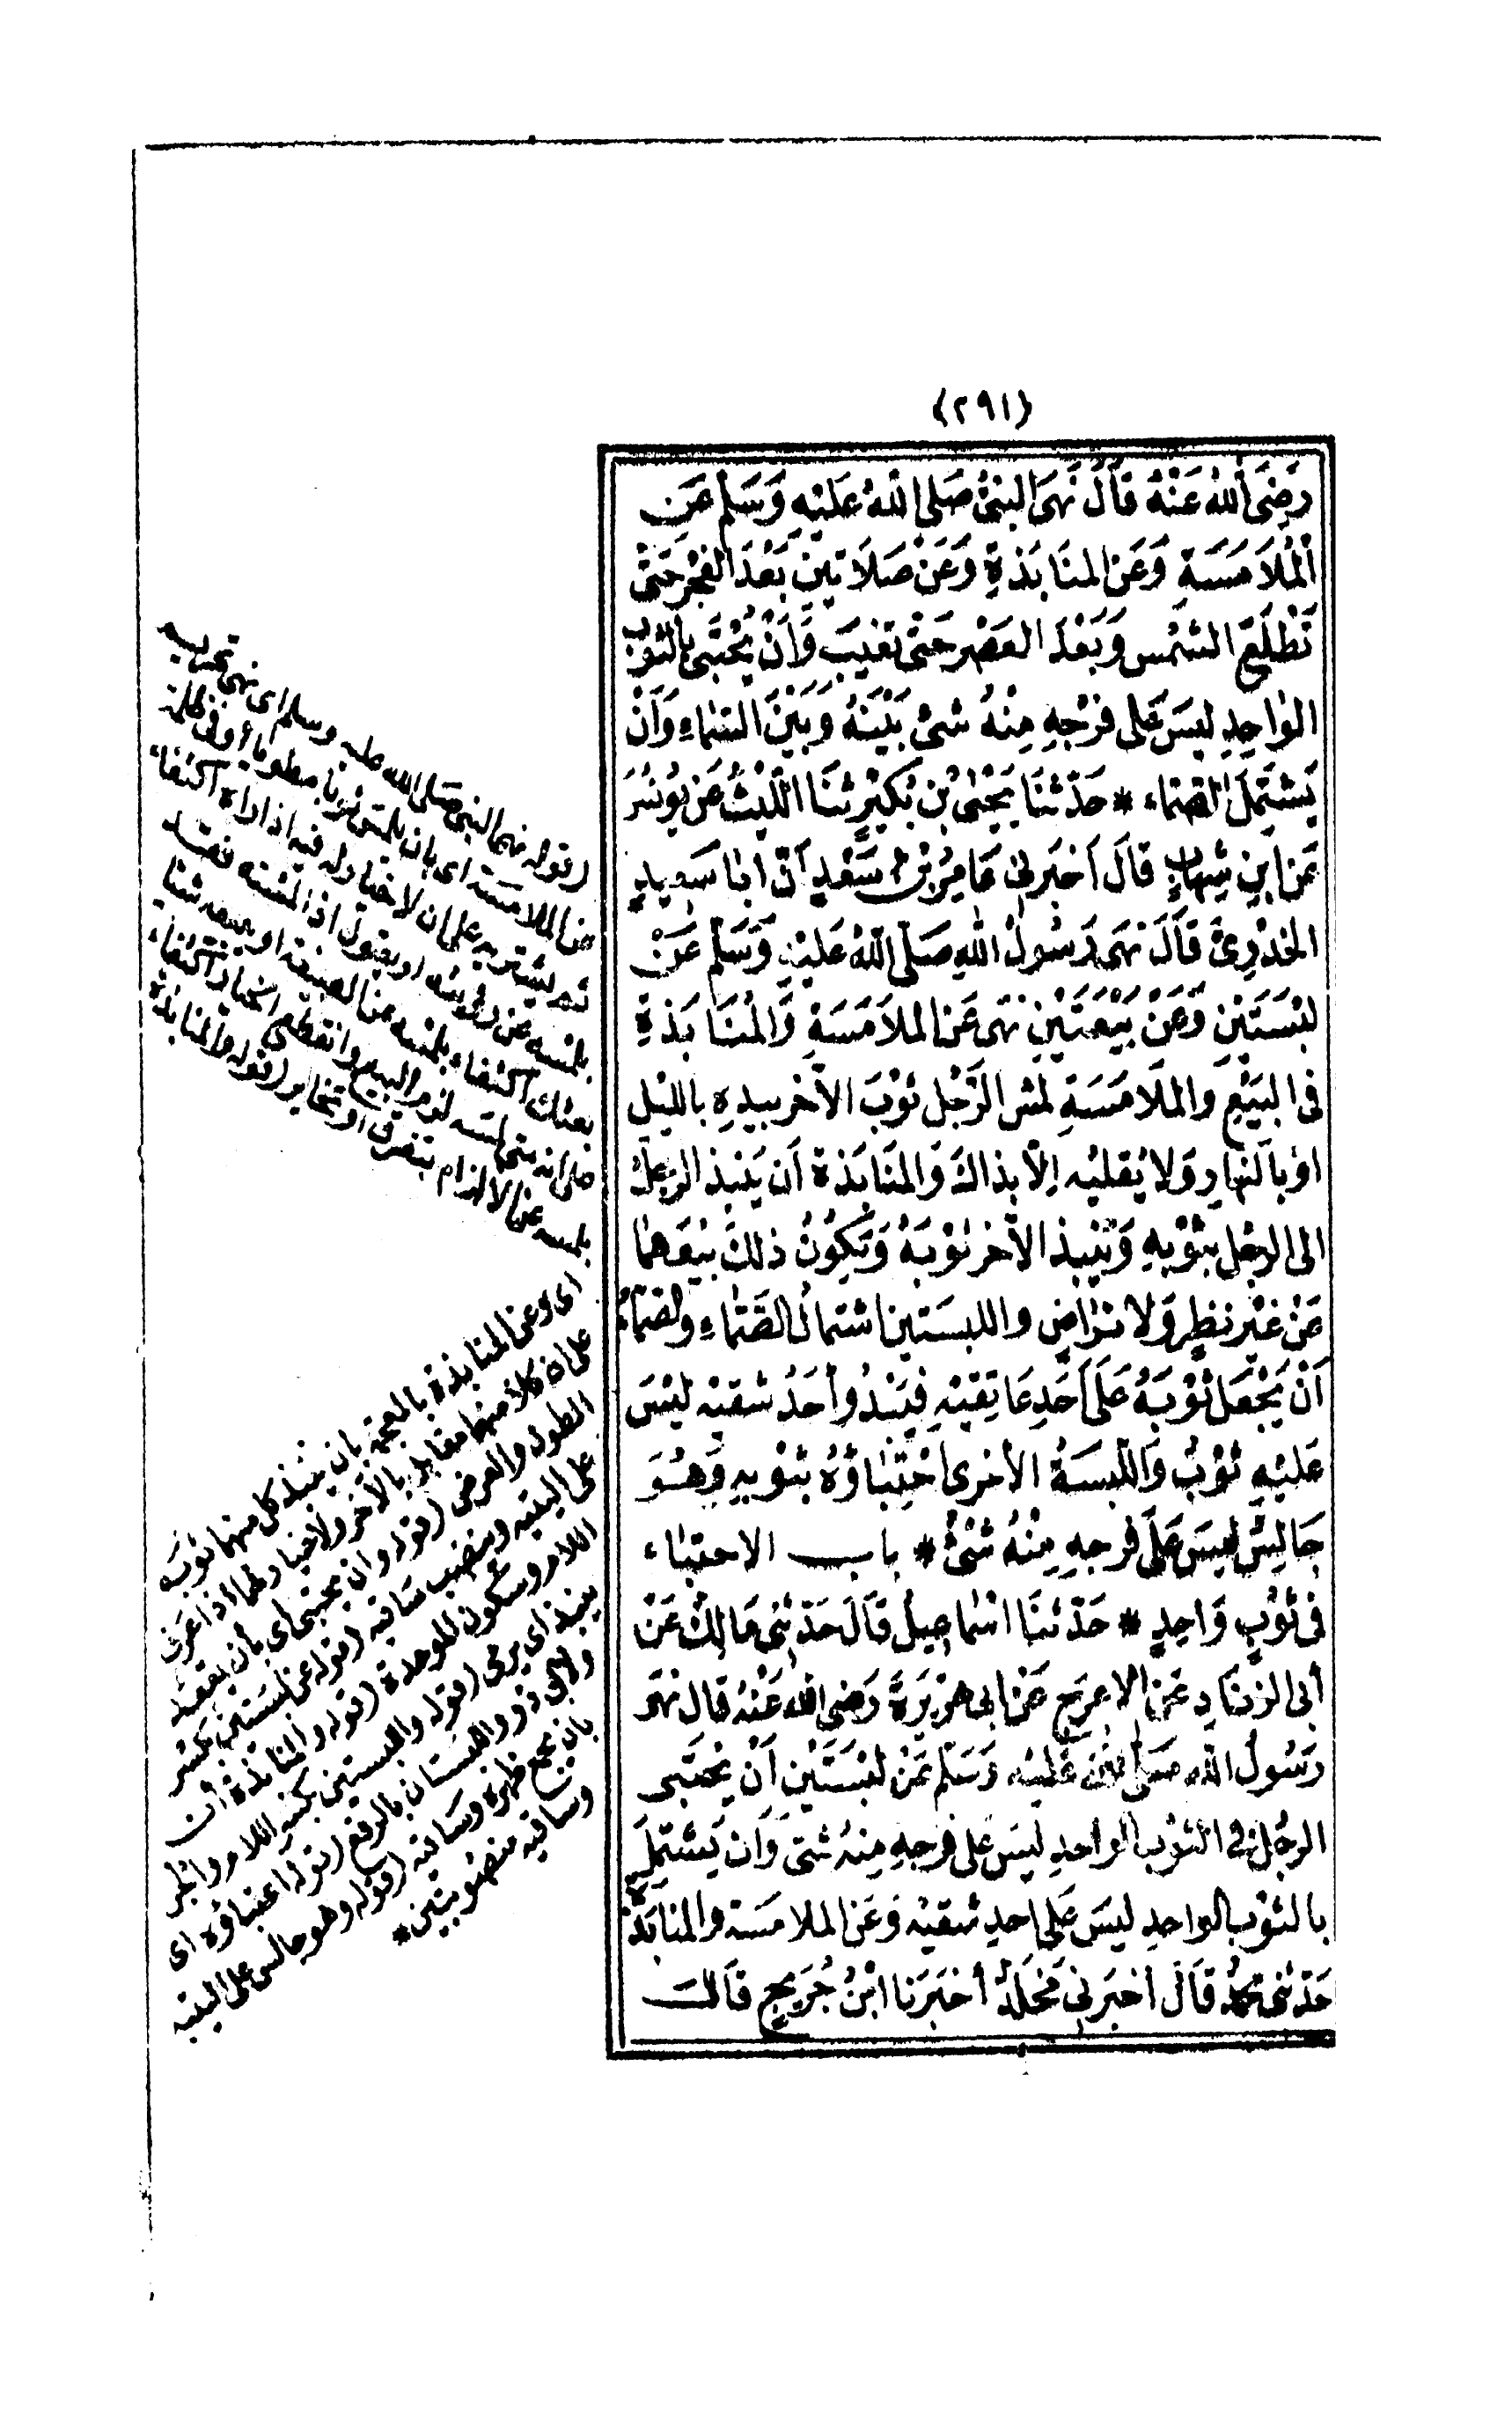 (٢٩١)
رَضِىَ اللهُ عَنْهُ قَالَ نَهَى النبىُّ صَلى اللهُ عَلَيْهِ وَسَلَّم عَنِ
الْمُلَامَسَةِ وَعَنِ المنَابَذةِ وَعَنْ صَلَاتين بَعْدَ الفجْر حَتىّ
تَطْلَعَ الشمْس وَبَعْدَ العَصْرِ حَتىّ تغيبَ وَأنْ يَحْتَبى بالثوب
الوٰاحِدِ ليسَ عَلى فرْجِهِ مِنْهُ شىْ بَيْنَهُ وَبَيْنَ السّماءِ وَأنْ
يَشتَمِلَ الصَّماء * حَدّثنَا يَحْيٰى بْن بُكيْر ثنَا اللَّيْثُ عَن يُونُسَ
عَن ابنِ شِهَابٍ قالَ أخبَرنى عَامِرُ بْنُ سَعْدٍ أنّ ابَا سَعِيدٍ
الخدْرِىَّ قَالَ نهَى رَسُولُ اللهِ صَلّى اللهُ عَليْهِ وَسَلّم عَنْ
لبْسَتَيْنِ وَعَنْ بَيْعَتَيْنِ نهَى عَن الملاَمَسَةِ وَالمُنَابَذةِ
فى البَيْعِ وَالملَامَسَةِ لمسُ الرَّجُل ثوْبَ الآخر بيدِهِ بالليْل
اوْ بالنهارِ وَلا يُقلبُه اِلّا بذاكَ وَالمنَابَذة أن يَنبذ الرجل
الى الرجُل بثوْبِهِ وَيَنبذ الآخر ثوْبَهُ وَيَكُونُ ذلكَ بيْعَهمَا
عَنْ غيْر نظرٍ وَلا تراضٍ واللبسَتين اشتمالُ الصَّمَّاءِ والصَّماءُ
أنْ يَجْعَل ثوْبَهُ عَلَى أحَدِ عَاتِقَيْهِ فيَبْدُو أحَدُ شقيْه ليْسَ
عَليْهِ ثوْبٌ وَاللبسَةُ الأخرى احْتِبَاؤُهُ بثوْبِهِ وَهُوَ
جَالِسٌ ليسَ عَلَى فرجهِ مِنْهُ شىْءٌ * باب الاحتبَاء
فى ثوْبٍ وَاحِدٍ * حَدّثنَا اسْماعِيلُ قَالَ حَدّثنِى مَالِكٌ عَنْ
أبى الزنَادِ عَن الاعرَج عَن ابى هُرَيْرَةَ رَضِىَ اللهُ عَنْهُ قال نهَى
رَسُولُ اللهِ صَلّى اللهُ عَليْه وَسَلّم عَنْ لبْسَتَيْنِ أنْ يَحتَبى
الرجُل فى الثوْب الواحدِ ليسَ عَلى فرجهِ مِنهُ شىَ وَأن يَشتمِلَ
بالثوْب الواحدِ ليسَ عَلى احدِ شقيْه وَعَن الملامَسَة والمنابَذة
حَدّثنى مُحَمَّد قَالَ أخبَرنِى مَخْلَدٌ أخبَرَنا ابْنُ جُرَيجٍ قَالَ
(قوله نهى النبى صلى الله عليه وسلم اى نهى تحريم
عن الملامسة اى بان يلمس ثوبا مطويا أو فى ظلمة
ثم يشتريه على ان لا خيار له فيه اذا رآه اكتفاء
بلمسه عن رؤيته او يقول اذا لمسته فقد
بعتك اكتفاء بلمسه عن الصيغة او يبيعه شيئا
على انه متى لمسه لزم البيع وانقطع الخيار اكتفاء
بلمسه عن الالزام بتفرق او تخاير (قوله والمنابذة
اى وعن المنابذة بالمعجمة بان ينبذ كل منهما ثوبه
على ان كلا منهما مقابل بالآخر ولا خيار لهما اذا عرف
الطول والعرض (قوله وان يحتبى اى بأن يقعد
على أليتيه وينصب ساقيه (قوله عن لبستين بكسر
اللام وسكون الموحدة (قوله والمنابذة أن
ينبذ اى يرمى (قوله واللبستين بكسر اللام والجر
ولابى ذر واللبستان بالرفع (قوله احتباؤه اى
بان يجمع ظهره وساقيه (قوله وهو جالس على أليتيه
وساقيه منصوبتين *